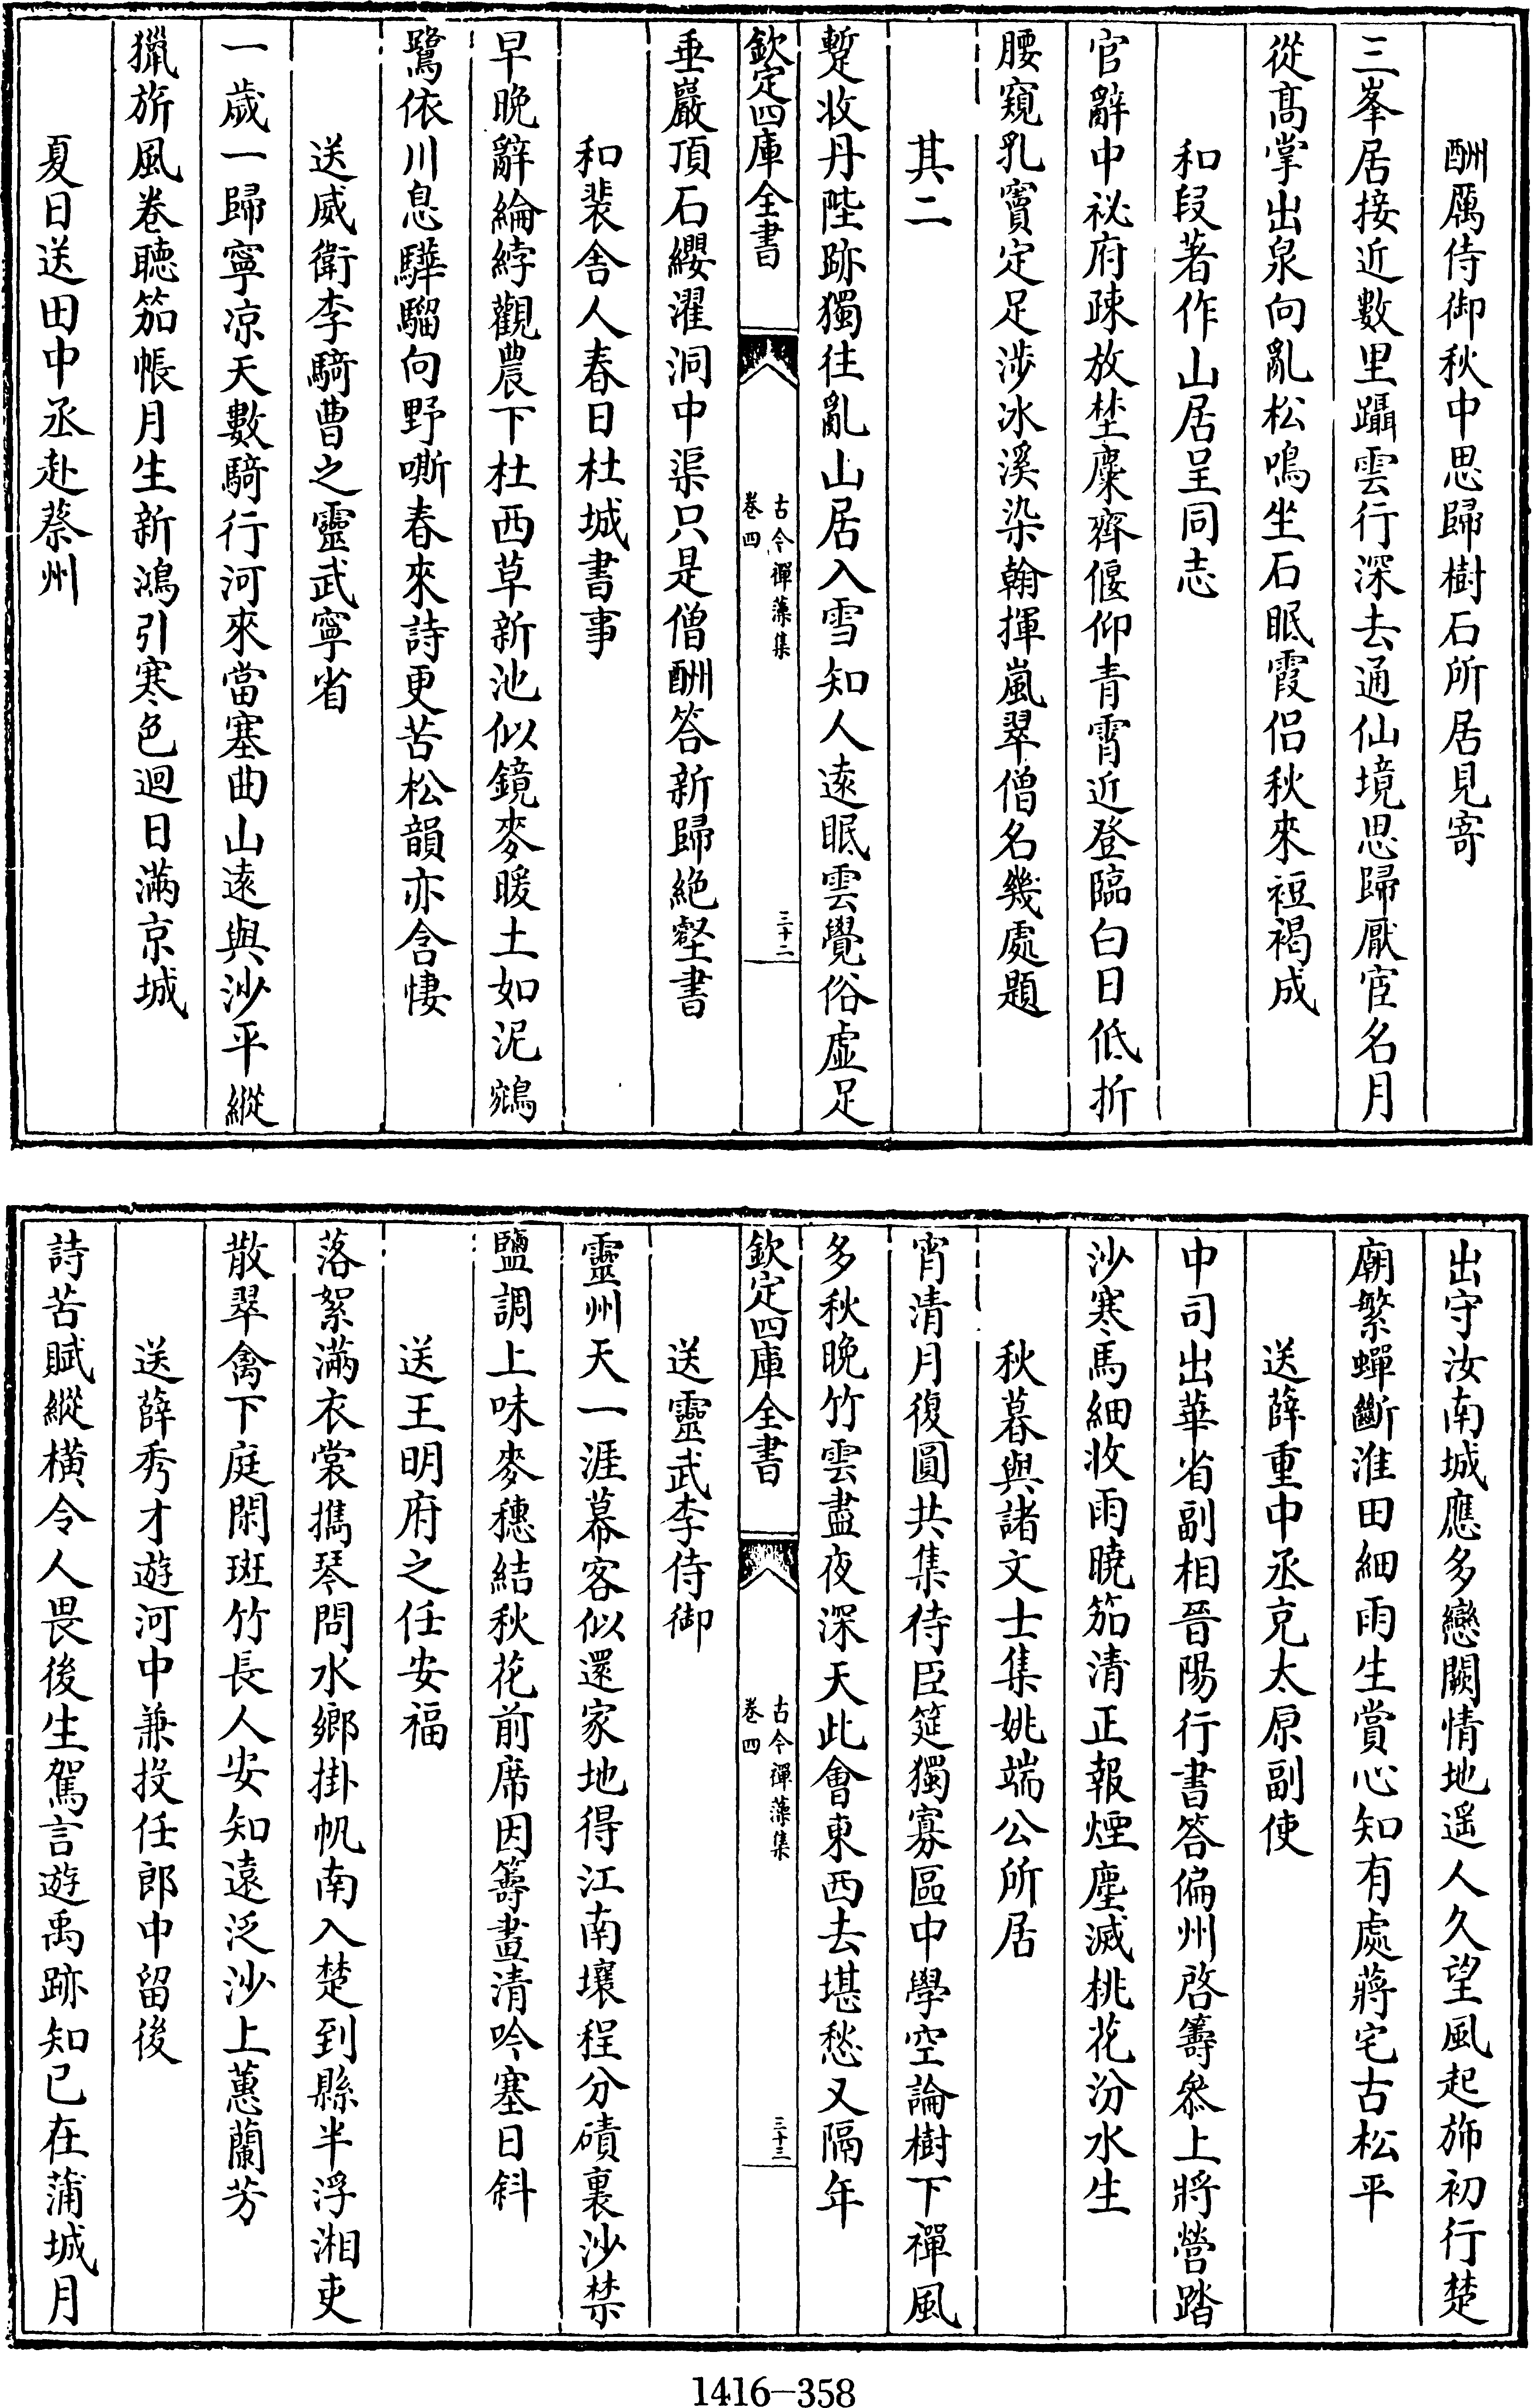 酬厲侍御秋中思歸樹石所居見寄
三峯居接近數里躡雲行深去通仙境思歸厭宦名月
從髙掌出泉向亂松鳴坐石眠霞侣秋來裋褐成
和段著作山居呈同志
官辭中祕府疎放埜麋齊偃仰青霄近登臨白日低折
腰窺乳竇定足涉冰溪染翰揮嵐翠僧名幾處題
其二
蹔收丹陛跡獨往亂山居入雪知人逺眠雲覺俗虚足
欽定四庫全書
古今禪藻集
卷四
三十二
垂巖頂石纓濯洞中渠只是僧酬答新歸絶壑書
和裴舍人春日杜城書事
早晚辭綸綍觀農下杜西草新池似鏡麥暖土如泥鵷
鷺依川息驊騮向野嘶春來詩更苦松韻亦含悽
送威衛李騎曹之靈武寧省
一歲一歸寧凉天數騎行河來當塞曲山逺與沙平縱
獵旂風卷聽笳帳月生新鴻引寒色迴日滿京城
夏日送田中丞赴蔡州
出守汝南城應多戀闕情地遥人久望風起斾初行楚
廟繁蟬斷淮田細雨生賞心知有處蔣宅古松平
送薛重中丞克太原副使
中司出華省副相晉陽行書答偏州啓籌叅上將營踏
沙寒馬細收雨曉笳清正報煙塵滅桃花汾水生
秋暮與諸文士集姚端公所居
宵清月復圓共集侍臣筵獨寡區中學空論樹下禪風
多秋晚竹雲盡夜深天此會東西去堪愁又隔年
欽定四庫全書
古今禪藻集
卷四
三十三
送靈武李侍御
靈州天一涯幕客似還家地得江南壤程分磧裏沙禁
鹽調上味麥穗結秋花前席因籌畫清吟塞日斜
送王明府之任安福
落絮滿衣裳攜琴問水鄉掛帆南入楚到縣半浮湘吏
散翠禽下庭閑斑竹長人安知遠泛沙上蕙蘭芳
送薛秀才遊河中兼投任郎中留後
詩苦賦縱橫令人畏後生駕言遊禹跡知已在蒲城月
1416-358